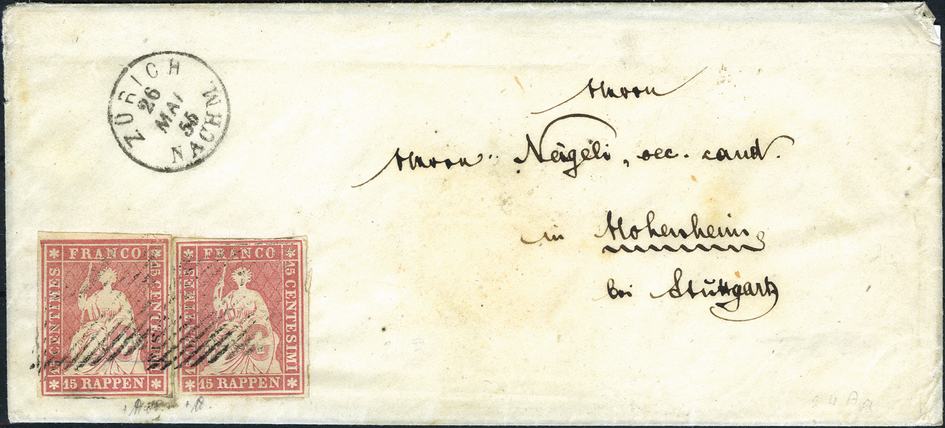 ZÜRICH
26
MAI
55
NACHM
Herrn
Herrn Nägeli, oec. cand.
in Hohenheim
bei Stuttgart
FRANCO
15 CENTIMES
15 CENTESIMI
15 RAPPEN
FRANCO
15 CENTIMES
15 CENTESIMI
15 RAPPEN